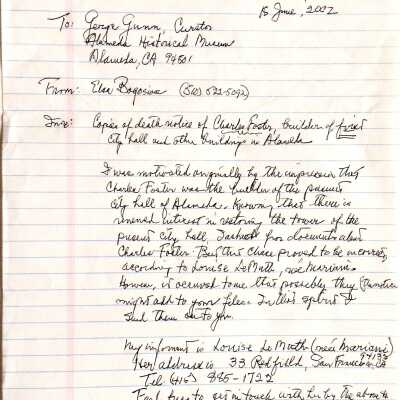 15 June, 2002
To: George Gunn, Curator
Alameda Historical Museum
Alameda, CA 94501
From: Elsa Bogosian (510) 521-5092)
Copies of death notice of Charles Foster, builder of first
city hall and other buildings in Alameda
I was motivated originally by the impression that
Charles Foster was the builder of the present
city hall of Alameda. Knowing that there is
renewed interest in restoring the tower of the
present city hall, I asked for documents about
Charles Foster. But this chase proved to be incorrect,
according to Louise LeMuth, née Mariani.
However, it occurred to me that possibly they
might add to your files. In this spirit I
send them on to you.
My informant is Louise LeMuth (née Mariani)
Her address is 33 Redfield, San Francisco, CA
Tel: (415) 885-1722
Feel free to get in touch with her by the above